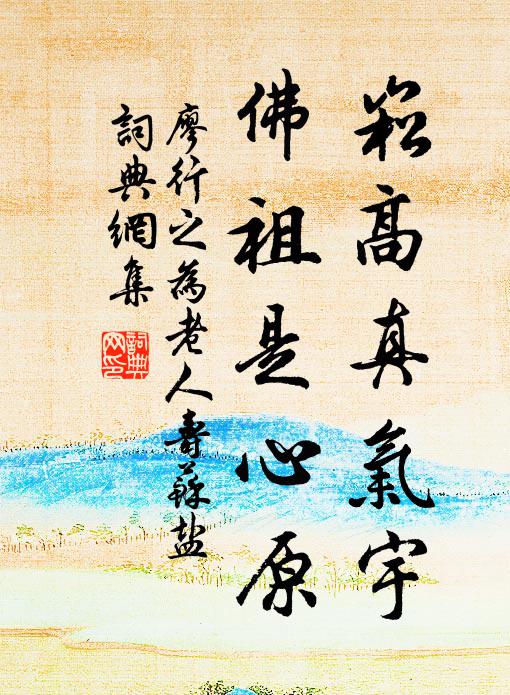 崧高真氣宇
佛祖是心原
廖行之為老人壽蘇盐
詞典網集
詞典网印